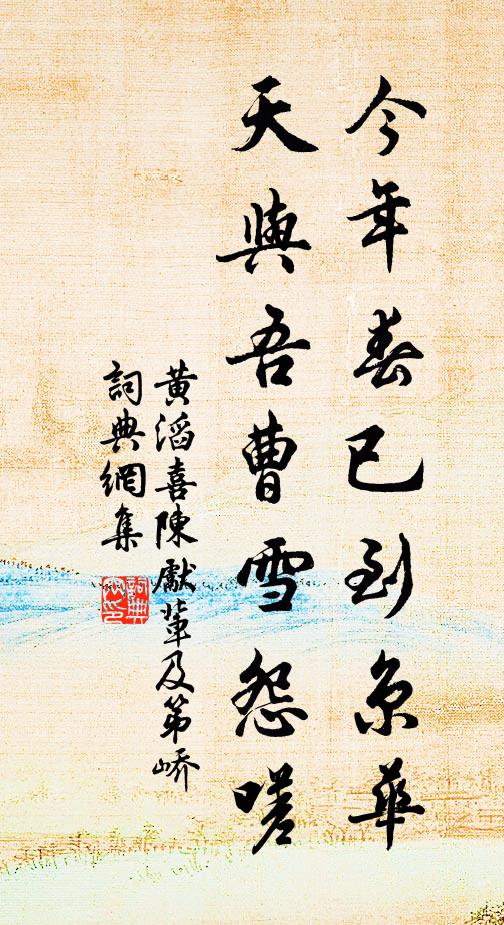 今年春已到京華
天與吾曹雪怨嗟
黃滔喜陳獻輩及第嶠
詞典網集